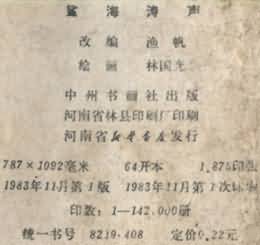 鲨海涛声
改编 渔帆
绘画 林国光
中州书画社出版
河南省林县印刷厂印刷
河南省新华书店发行
787×1092毫米 64开本 1.875印张
1983年11月第1版 1983年11月第1次印刷
印数：1—142,000册
统一书号 8219·408 定价0.22元